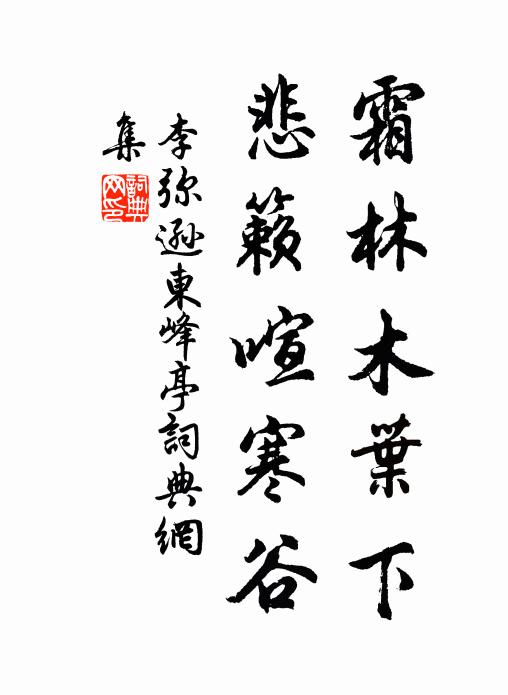 霜林木葉下
悲籟喧寒谷
李弥遜東峰亭詞典網
集
詞典
网印